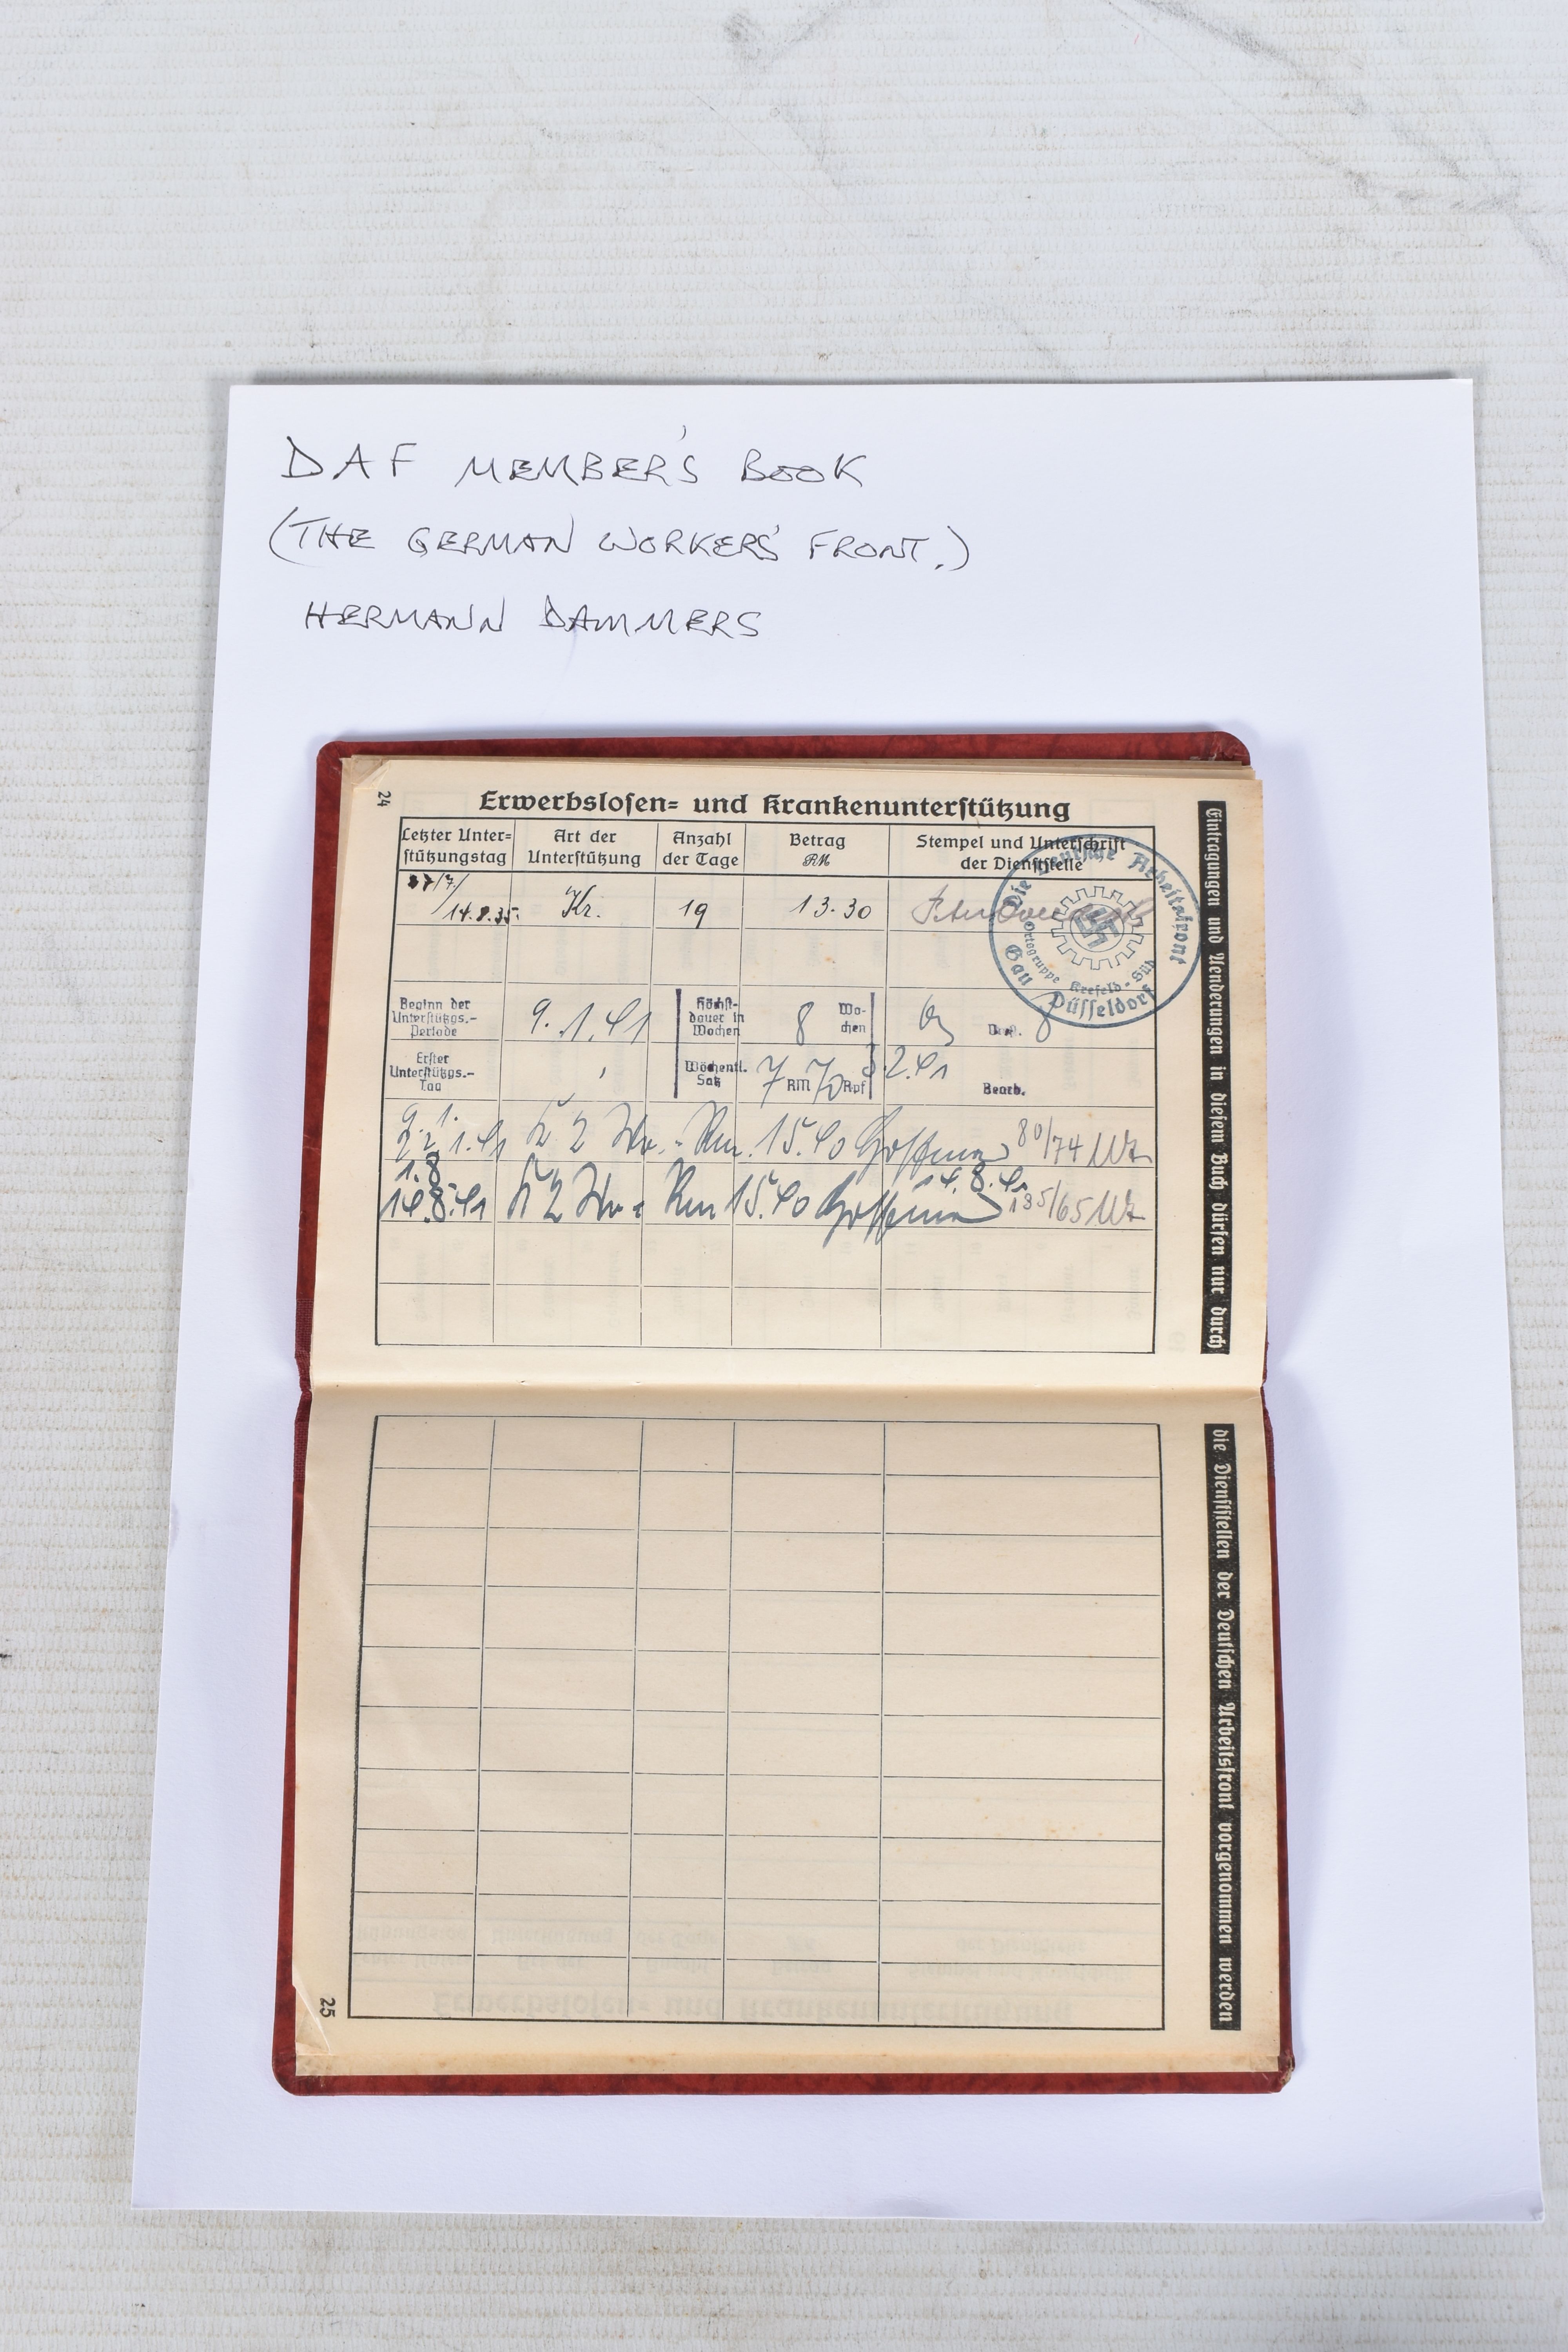 DAF MEMBER'S BOOK
(THE GERMAN WORKERS' FRONT.)
HERMANN DAMMERS
24
Erwerbslosen= und Krankenunterstützung
Letzter Unter=
stützungstag
Art der
Unterstützung
Anzahl
der Tage
Betrag
RM
Stempel und Unterschrift
der Dienststelle
27/7/
14.8.35.
Kr.
19
13.30
Die Deutsche Arbeitsfront
Ortsgruppe Krefeld-Süd
Gau Düsseldorf
Beginn der
Unterstützgs.-
Periode
9.1.41
Höchst-
dauer in
Wochen
8
Wo-
chen
Erster
Unterstützgs.-
Tag
Wöchentl.
Satz
7 RM 70 Rpf
3.2.41
Bearb.
1.41 K 2 Wo. = Rm. 15.40 80/74
1.8.
14.8.41 K 2 Wo = Rm 15.40 14.8.41 135/65
Eintragungen und Aenderungen in diesem Buch dürfen nur durch
die Dienststellen der Deutschen Arbeitsfront vorgenommen werden
25